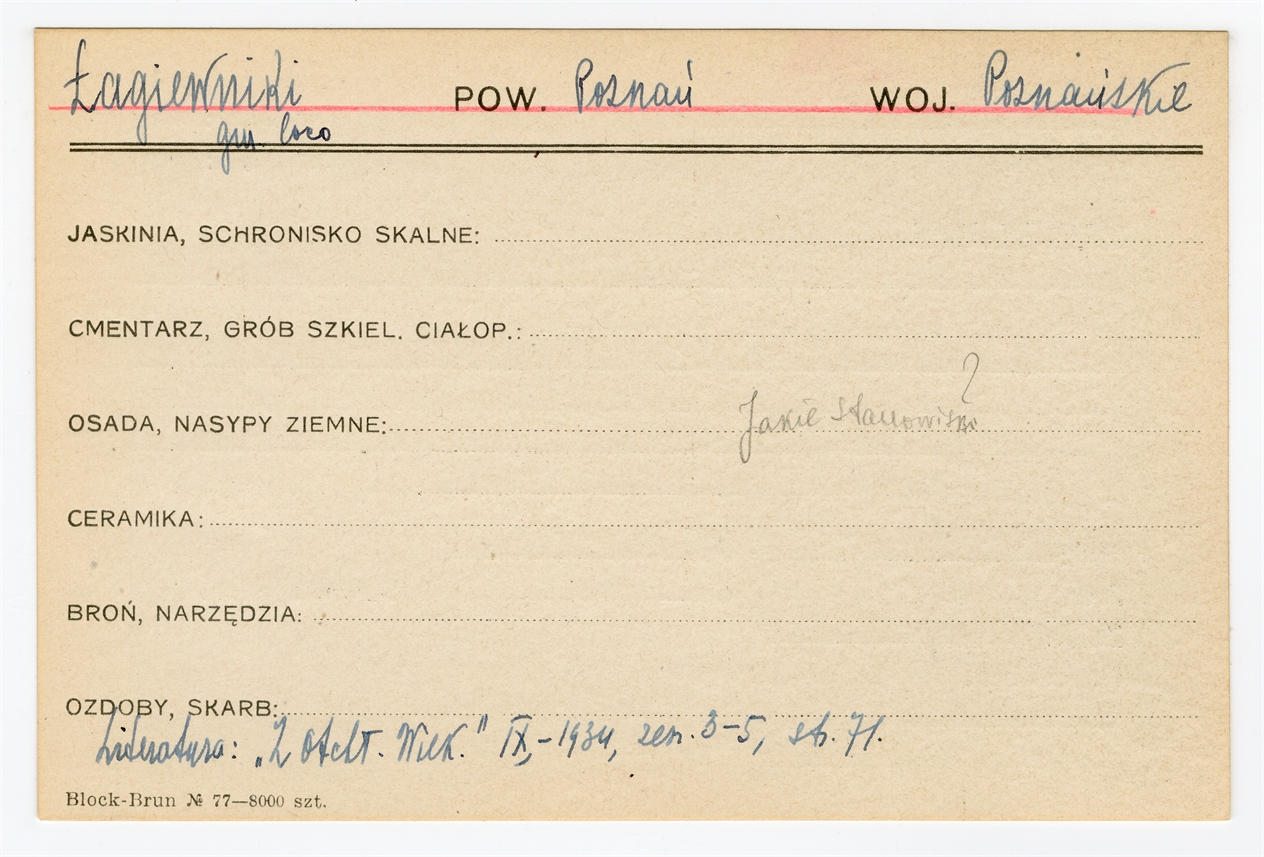 Łagiewniki POW. Poznań WOJ. Poznańskie
gm. loco
JASKINIA, SCHRONISKO SKALNE:
CMENTARZ, GRÓB SZKIEL. CIAŁOP.:
?
OSADA, NASYPY ZIEMNE: Jakie stanowisko
CERAMIKA:
BROŃ, NARZĘDZIA:
OZDOBY, SKARB:
Literatura: „Z Otchł. Wiek." IX,-1934, zesz. 3-5, str. 71.
Block-Brun № 77—8000 szt.